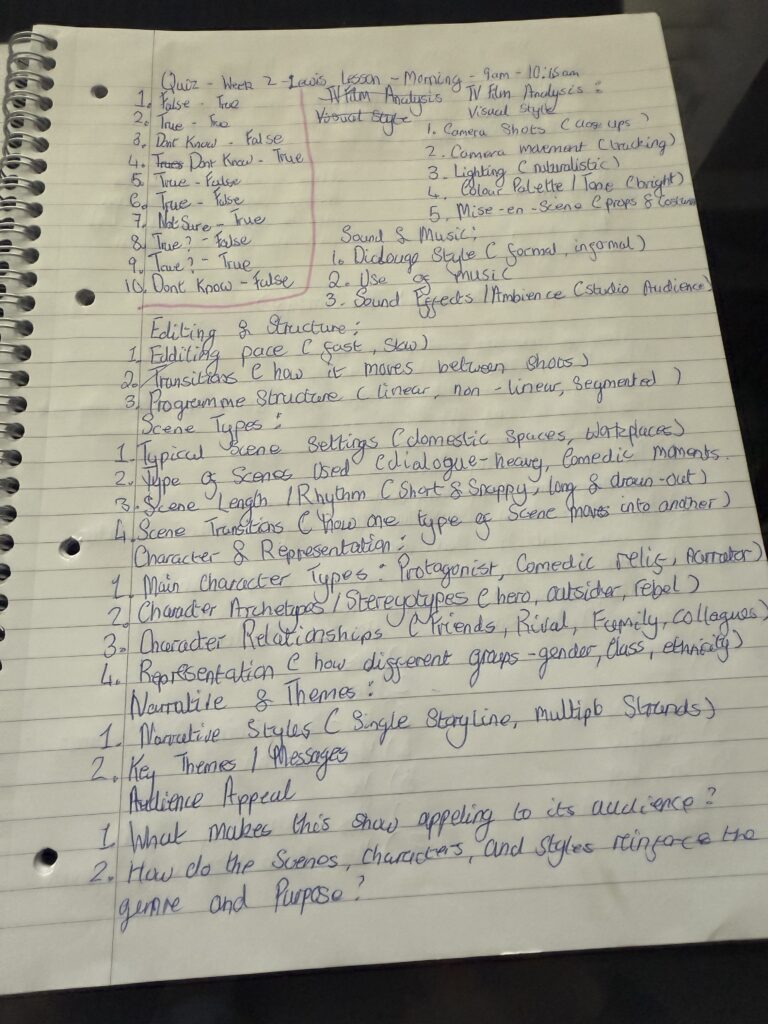 Quiz - Week 2 - Lewis Lesson - Morning - 9am - 10:15am
1. False - True
2. True - True
3. Dont Know - False
4. Trues Dont Know - True
5. True - False
6. True - False
7. Not Sure - True
8. True? - False
9. True? - True
10. Dont Know - False
TV Film Analysis
Visual Style
TV Film Analysis :
Visual Style
1. Camera Shots (close ups)
2. Camera movement (tracking)
3. Lighting (naturalistic)
4. Colour Palette / Tone (bright)
5. Mise-en-Scene (props & Costum
Sound & Music:
1. Dialouge Style ( formal, informal)
2. Use of music
3. Sound Effects / Ambience (Studio Audience)
Editing & Structure:
1. Edditing pace ( fast, slow)
2. Transitions ( how it moves between shots)
3. Programme Structure (linear, non-linear, Segmented )
Scene Types:
1. Typical Scene Settings (domestic Spaces, Workplaces)
2. Type of Scenes Used (dialogue-heavy, Comedic moments.
3. Scene Length / Rhythm (Short & Snappy, long & drawn-out)
4. Scene Transitions ( how one type of Scene moves into another)
Character & Representation:
1. Main Character Types: Protagonist, Comedic relif, narrator)
2. Character Archetypes / Stereyotypes (hero, outsider, rebel)
3. Character Relationships ( Friends, Rival, Family, Collegues)
4. Representation ( how different groups - gender, Class, ethnicity)
Narrative & Themes:
1. Narrative Styles ( Single Storyline, multiple Strands)
2. Key Themes / Messages
Audience Appeal
1. What makes this show appeling to its audience?
2. How do the Scenes, Characters, and Styles reinforce the
genre and Purpose?